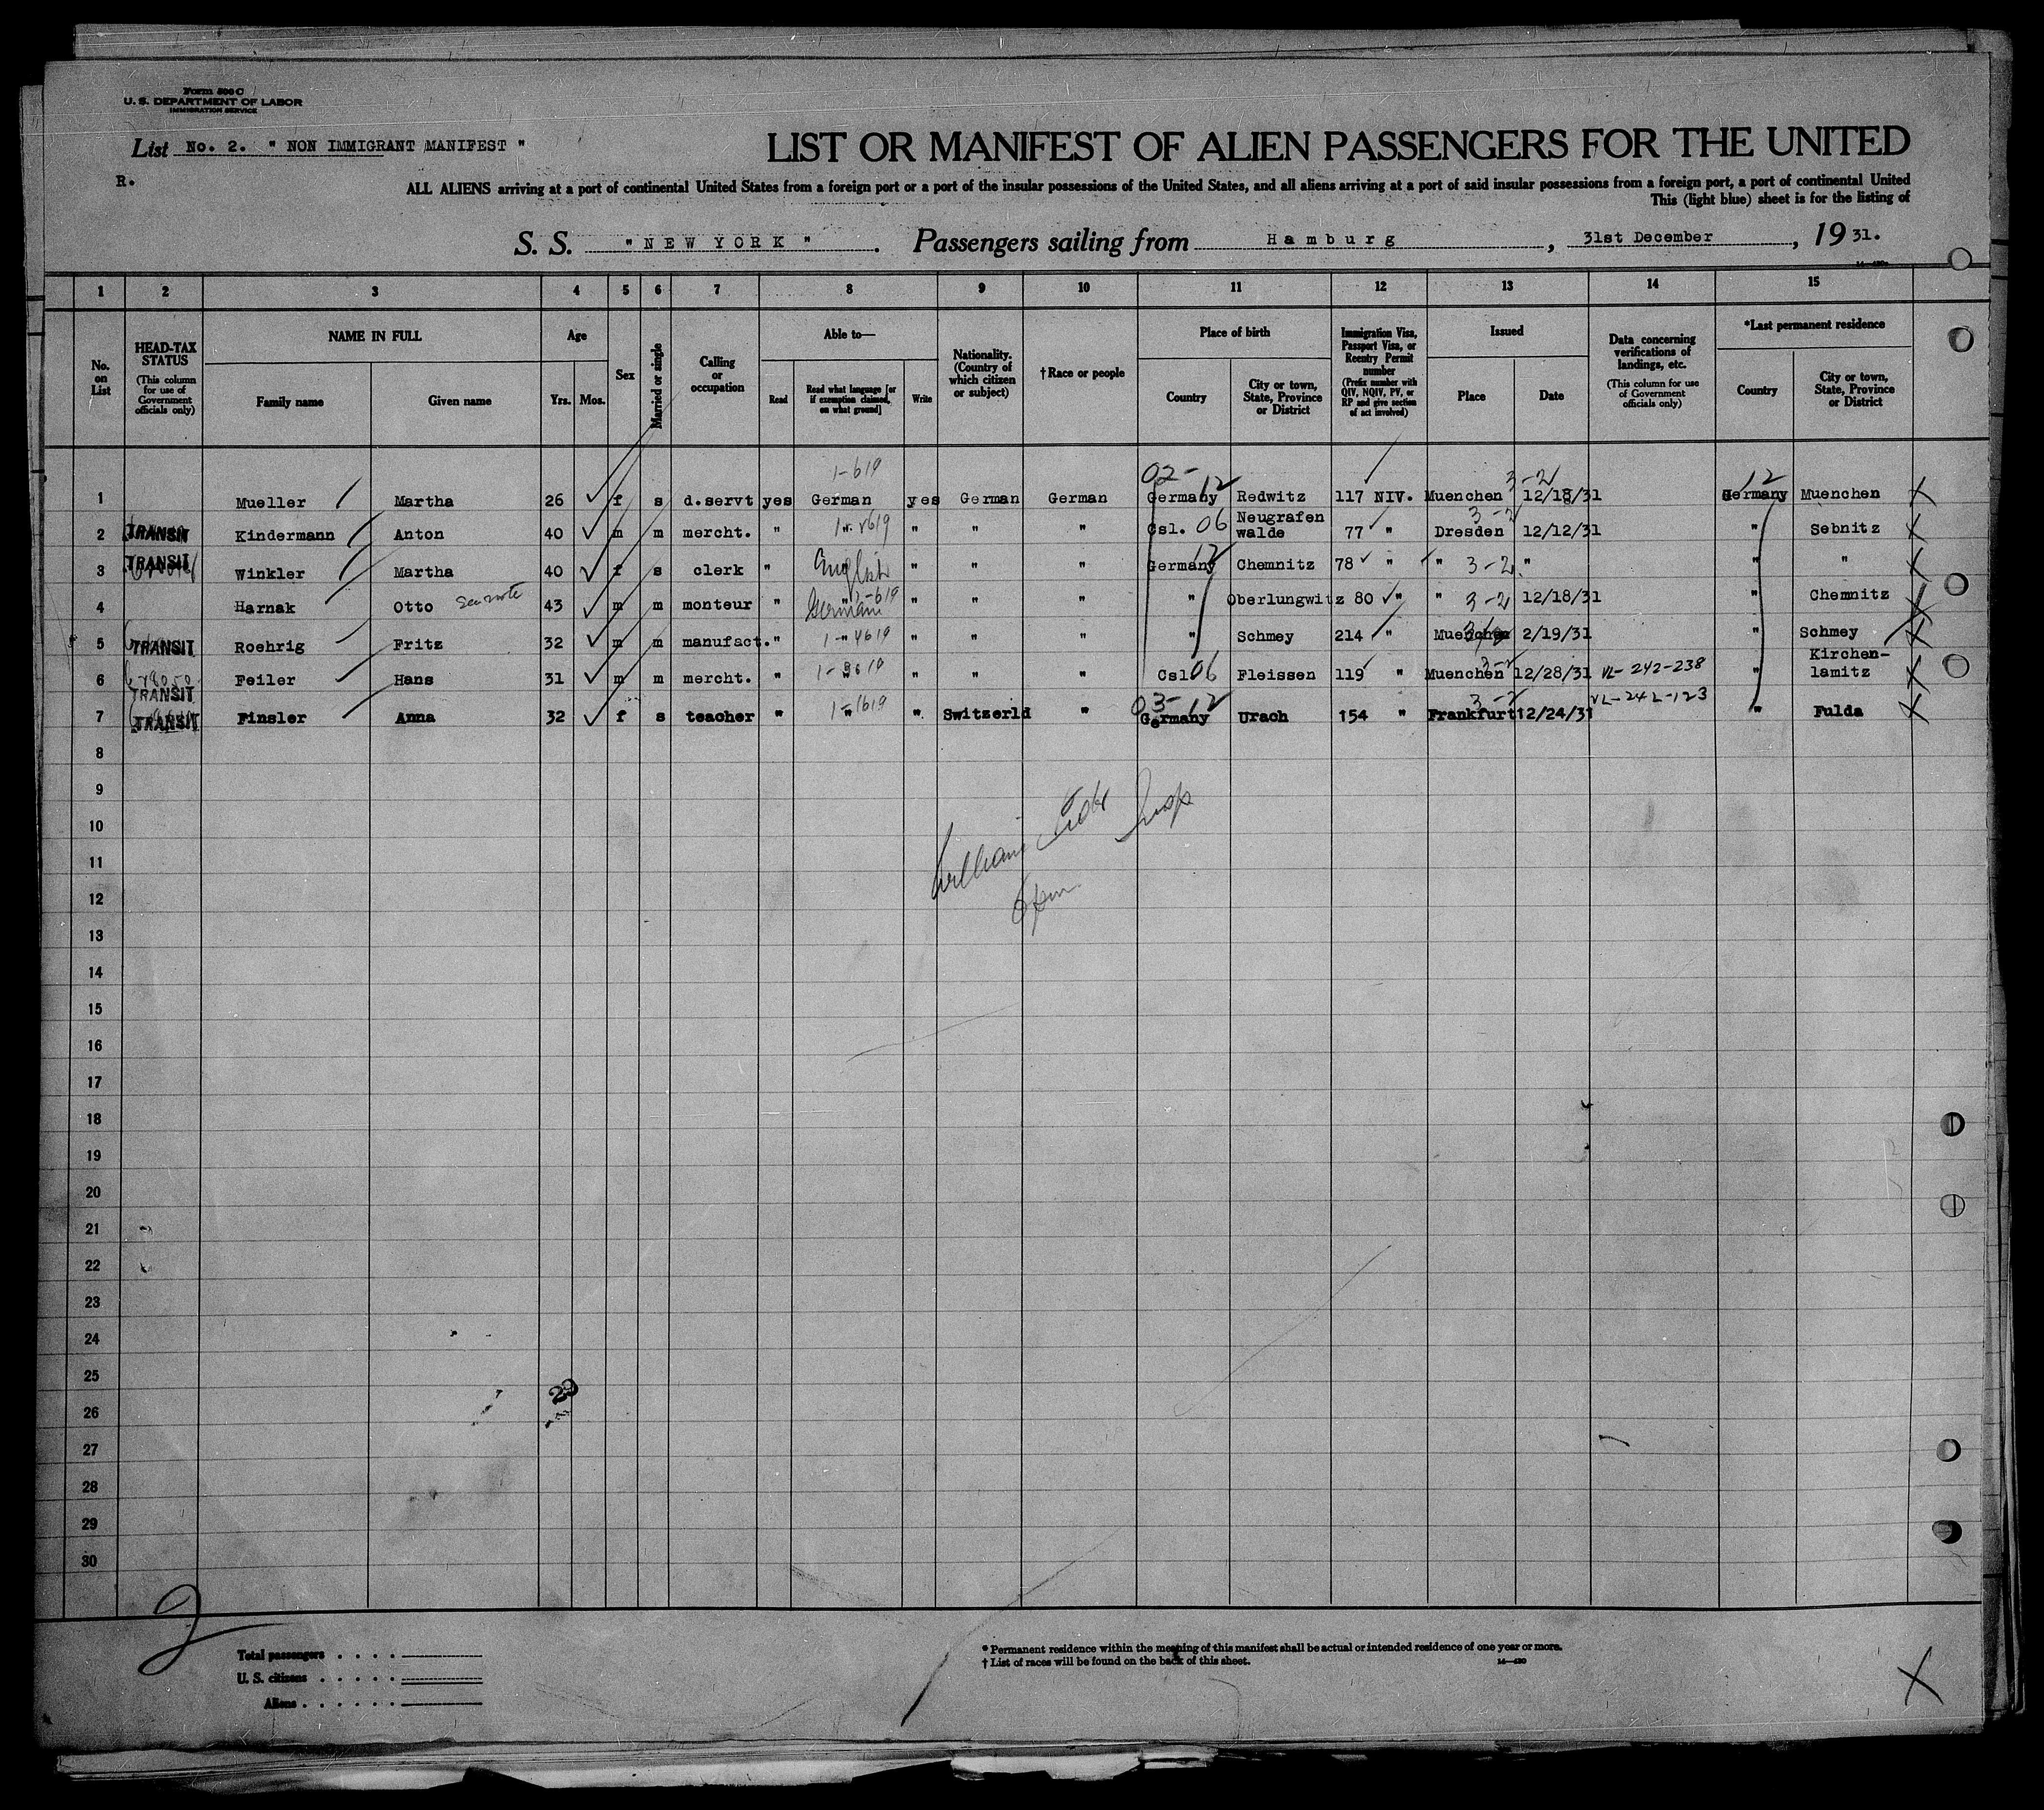 Form 500 C
U. S. DEPARTMENT OF LABOR
IMMIGRATION SERVICE
List No. 2. " NON IMMIGRANT MANIFEST "
R.
LIST OR MANIFEST OF ALIEN PASSENGERS FOR THE UNITED
ALL ALIENS arriving at a port of continental United States from a foreign port or a port of the insular possessions of the United States, and all aliens arriving at a port of said insular possessions from a foreign port, a port of continental United
This (light blue) sheet is for the listing of
S. S. " NEW YORK " . Passengers sailing from Hamburg , 31st December , 19 31.
1 2 3 4 5 6 7 8 9 10 11 12 13 14 15
No. on List
HEAD-TAX STATUS (This column for use of Government officials only)
NAME IN FULL
Family name Given name
Age
Yrs. Mos.
Sex
Married or single
Calling or occupation
Able to—
Read Read what language [or if exemption claimed, on what ground] Write
Nationality. (Country of which citizen or subject)
†Race or people
Place of birth
Country City or town, State, Province or District
Immigration Visa, Passport Visa, or Reentry Permit number (Prefix number with QIV, NQIV, PV, or RP and give section of act involved)
Issued
Place Date
Data concerning verifications of landings, etc. (This column for use of Government officials only)
*Last permanent residence
Country City or town, State, Province or District
1-619 02- 12 3-2 12
1 Mueller Martha 26 f s d.servt yes German yes German German Germany Redwitz 117 NIV. Muenchen 12/18/31 Germany Muenchen X
2 TRANSIT Kindermann Anton 40 m m mercht. " " " " " Csl. 06 Neugrafen walde 77 " Dresden 3-2 12/12/31 " Sebnitz X
3 TRANSIT Winkler Martha 40 f s clerk " English " " " Germany 12 Chemnitz 78 " " 3-2 " " " X
4 Harnak Otto See note 43 m m monteur " " German 1-619 " " " " Oberlungwitz 80 " " 3-2 12/18/31 " Chemnitz X
5 TRANSIT Roehrig Fritz 32 m m manufact. " " " " " " Schmey 214 " Muenchen 2/19/31 Schmey X
6 TRANSIT Feiler Hans 31 m m mercht. " " " " Csl 06 Fleissen 119 " Muenchen 3-2 12/28/31 VL-242-238 Kirchen-lamitz X
7 TRANSIT Finsler Anna 32 f s teacher " " " Switzerld " 03-12 Germany Urach 154 " Frankfurt 3-2 12/24/31 VL-242-123 " Fulda X
8
9
10
11
12
13
14
15
16
17
18
19
20
21
22
23
24
25
26
27
28
29
30
William Insp
2
Total passengers . . . .
U. S. citizens . . . . .
Aliens . . . . . .
* Permanent residence within the meaning of this manifest shall be actual or intended residence of one year or more.
† List of races will be found on the back of this sheet.
14—430
X